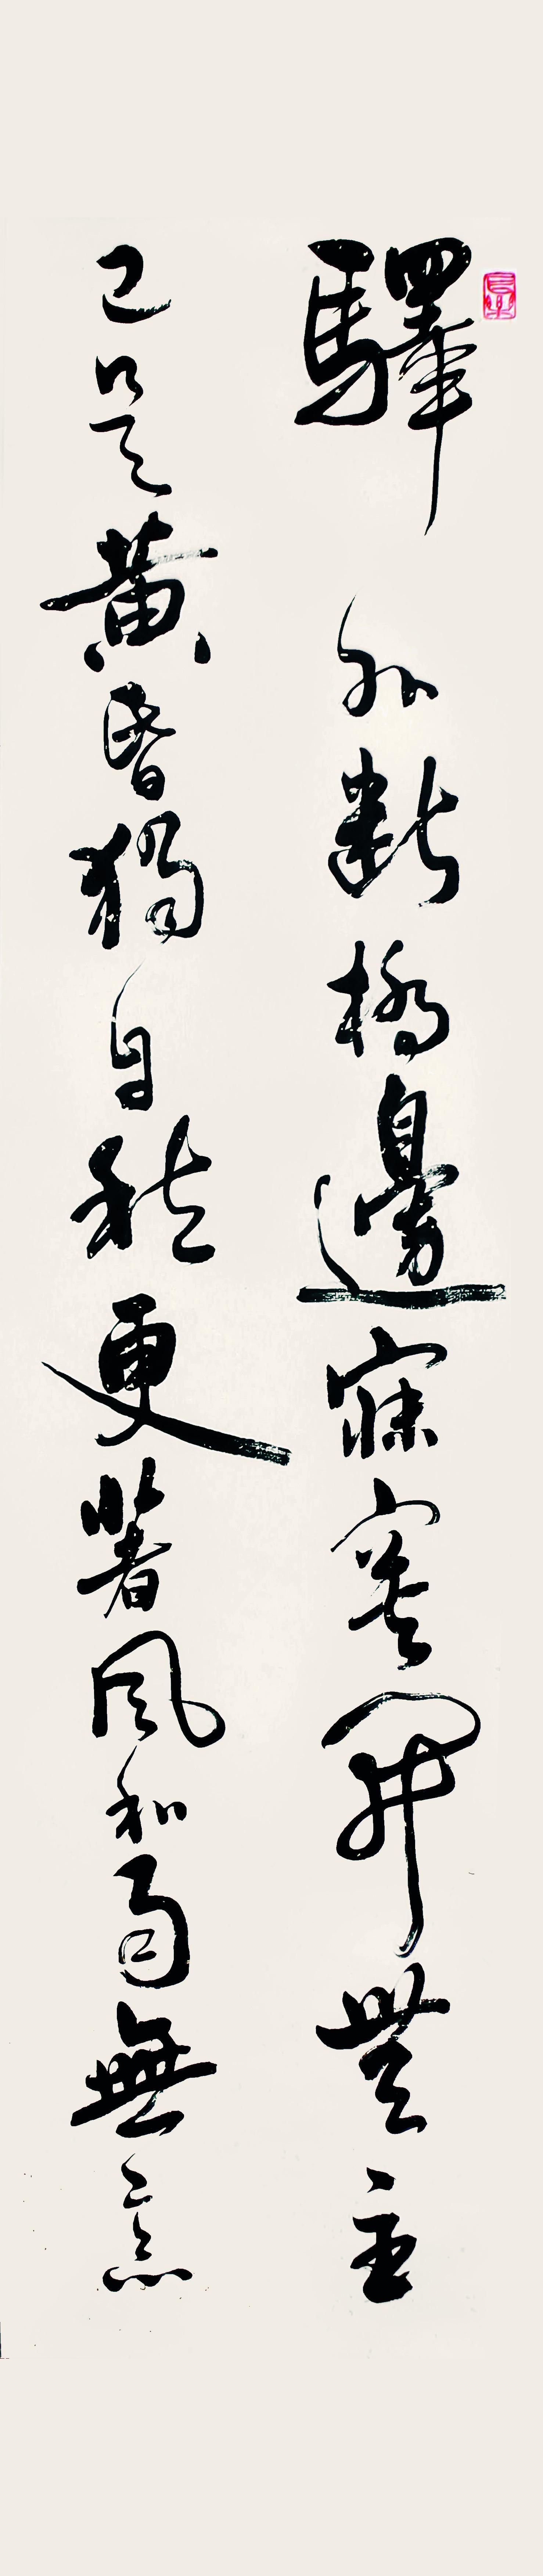 驛外斷橋邊寂寞開無主
已是黃昏獨自愁更著風和雨無意